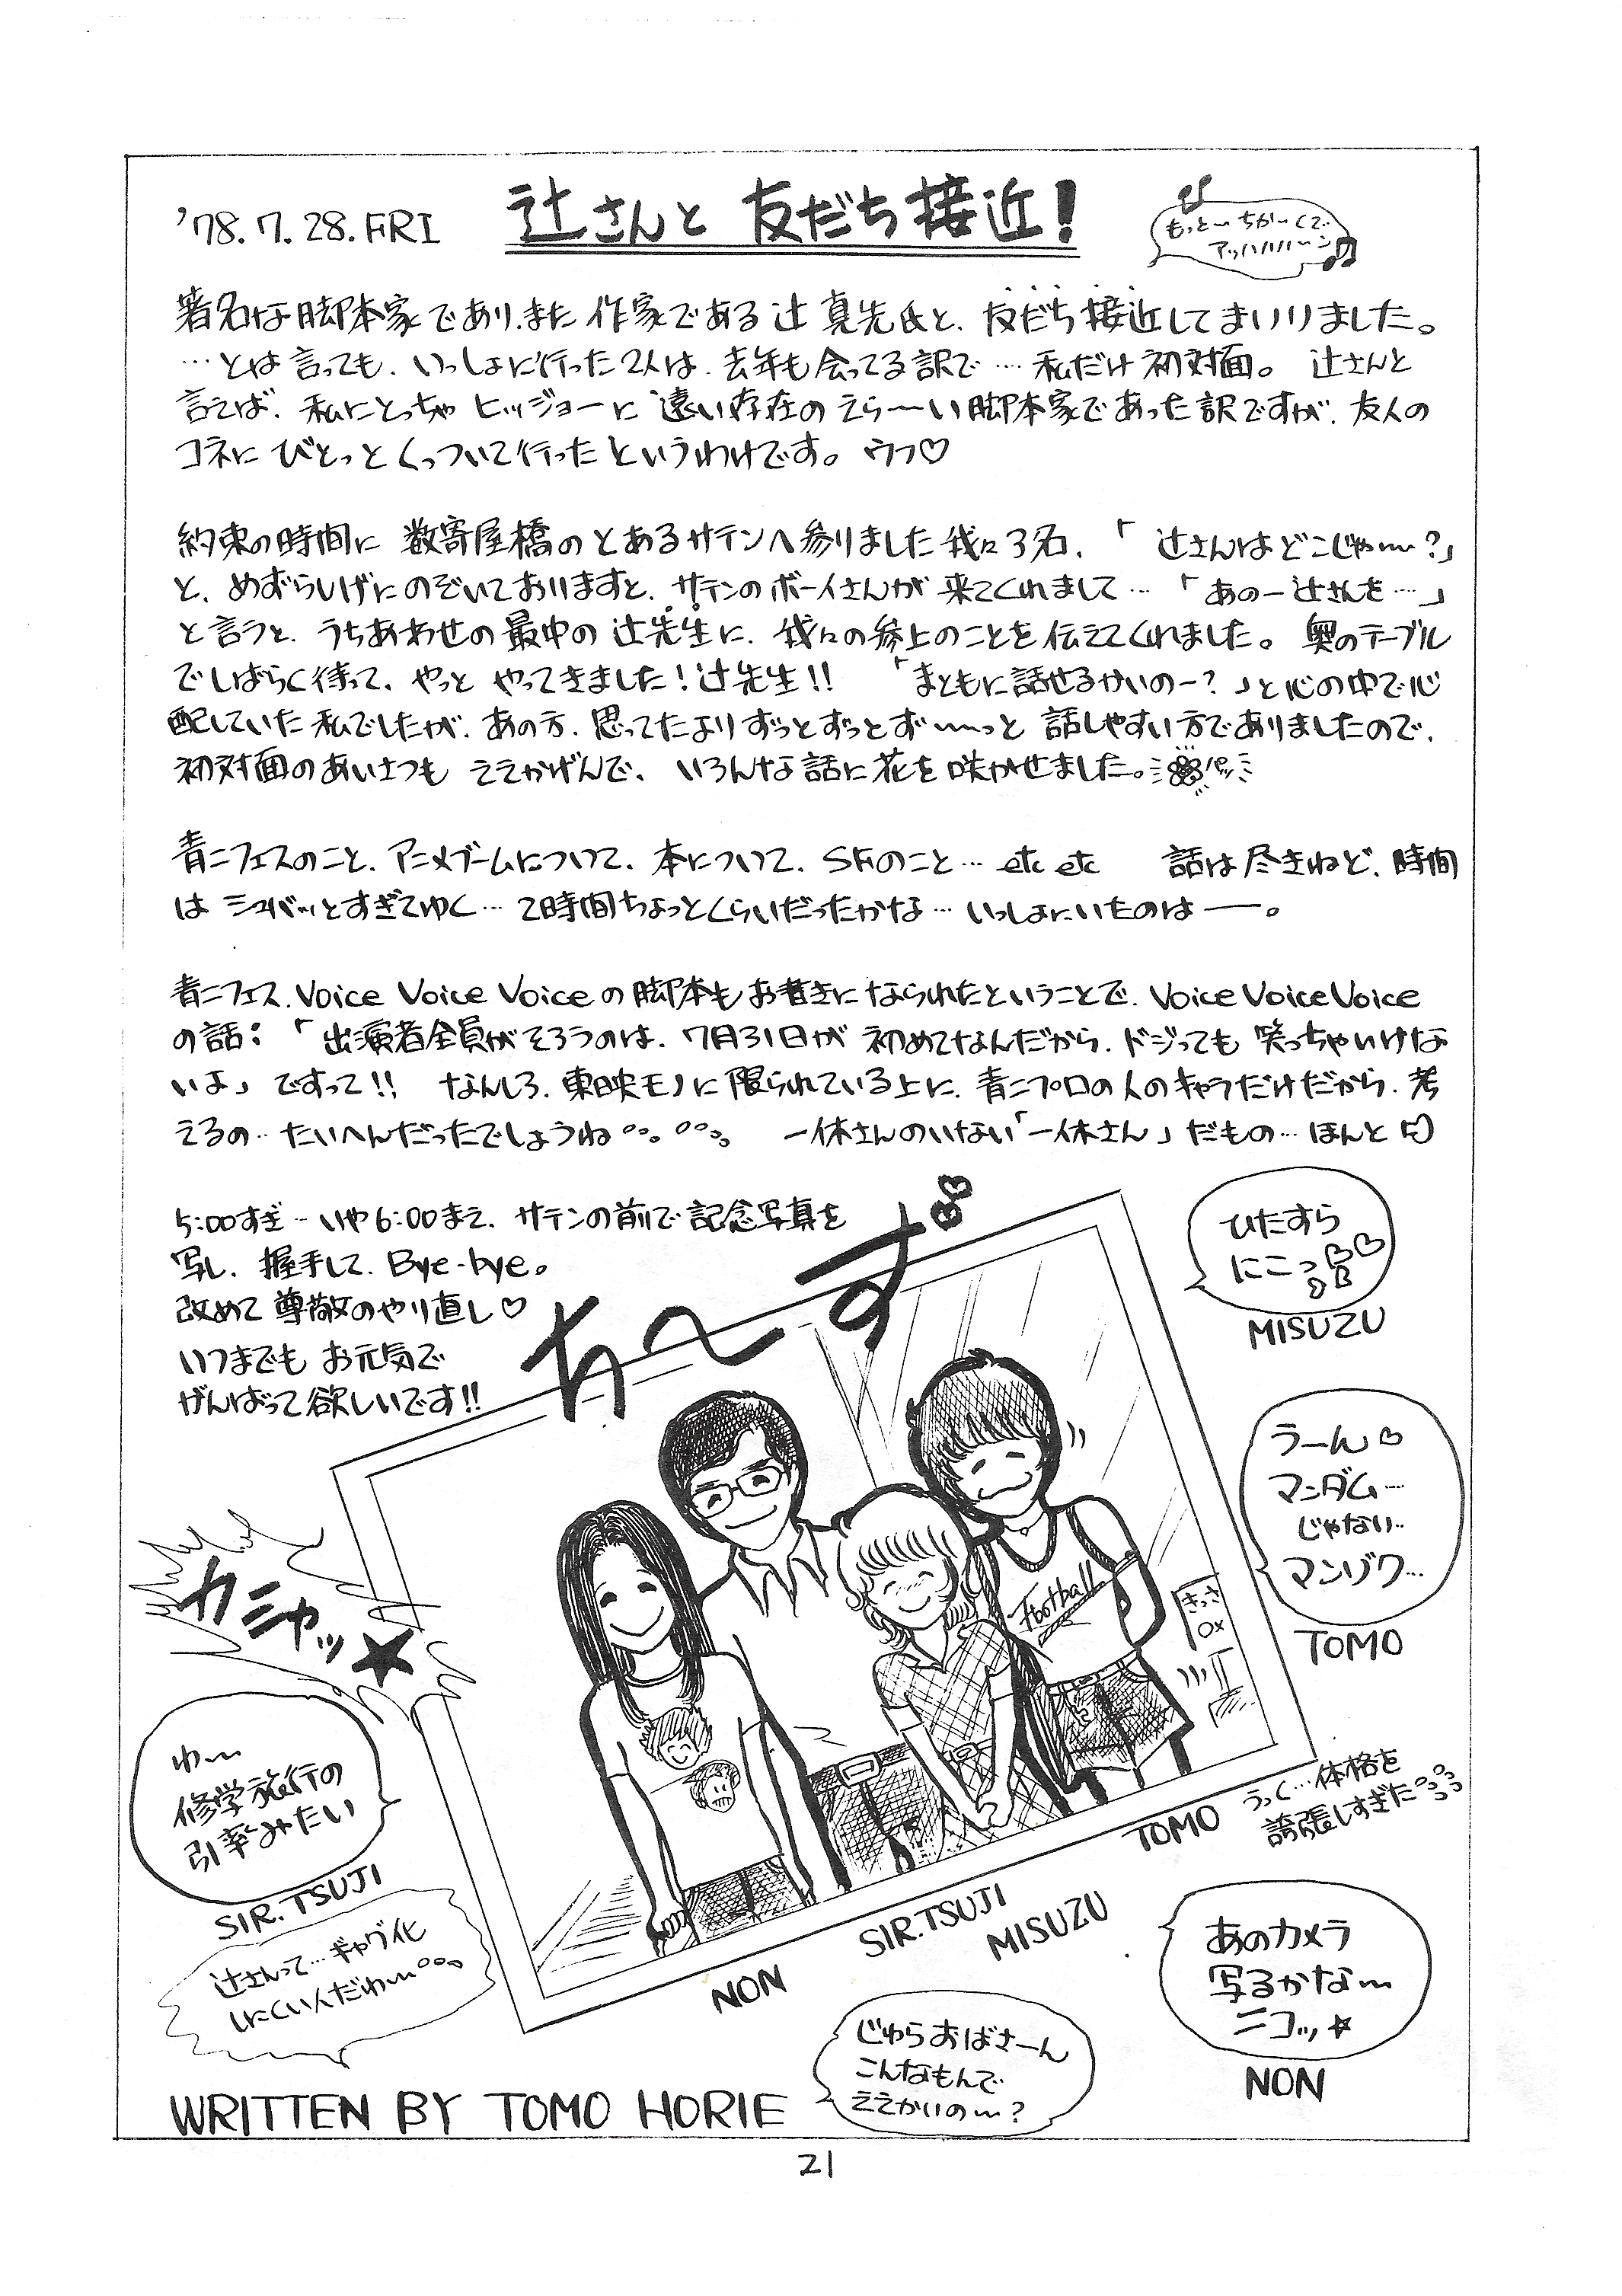 '78.7.28.FRI
辻さんと 友だち接近!
もっと〜ちか〜くで
アッハハハ〜ン
著名な脚本家であり、また作家である辻 真先氏と、友だち接近してまいりました。
…とは言っても、いっしょに行った2人は、去年も会ってる訳で…私だけ初対面。 辻さんと
言えば、私にとっちゃ ヒッジョーに 遠い存在のえら〜い脚本家であった訳ですが、友人の
コネに びとっと くっついて行ったというわけです。 ウフ♡
約束の時間に 数寄屋橋のとあるサテンへ参りました我々3名、「辻さんはどこじゃ〜?」
と、めずらしげにのぞいておりますと、サテンのボーイさんが 来てくれまして…「あのー辻さんを…」
と言うと、うちあわせの最中の辻先生に、我々の参上のことを伝えてくれました。 奥のテーブル
でしばらく待って、やっと やってきました!辻先生!! 「まともに話せるかいのー?」と心の中で心
配していた私でしたが、あの方、思ってたよりずっとずっとず〜〜っと 話しやすい方でありましたので、
初対面のあいさつも ええかげんで、いろんな話に花を咲かせました。
青二フェスのこと、アニメブームについて、本について、SFのこと… etc etc 話は尽きねど、時間
は シュバッとすぎてゆく…2時間ちょっとくらいだったかな…いっしょにいたのは──。
青二フェス、Voice Voice Voiceの脚本もお書きになられたということで、Voice Voice Voice
の話:「出演者全員がそろうのは、7月31日が 初めてなんだから、ドジっても 笑っちゃいけな
いよ」ですって!! なんしろ、東映モノに限られている上に、青二プロの人のキャラだけだから、考
えるの…たいへんだったでしょうね 一休さんのいない「一休さん」だもの…ほんと♡
5:00すぎ…いや6:00まえ、サテンの前で記念写真を
写し、握手して、Bye-bye。
改めて尊敬のやり直し♡
いつまでも お元気で
がんばって欲しいです!!
ち〜す
ひたすら
にこっ♡♡
MISUZU
うーん♡
マンダム…
じゃない…
マンゾク…
TOMO
カシャッ★
Football
きっさ
○×
わ〜
修学旅行の
引率みたい
SIR.TSUJI
辻さんって…ギャグ化
しにくいんだわ〜
NON
SIR.TSUJI
MISUZU
TOMO
うっく…体格を
誇張しすぎた
あのカメラ
写るかな〜
ニコッ☆
NON
じゅらおばさーん
こんなもんで
ええかいの〜?
WRITTEN BY TOMO HORIE
21